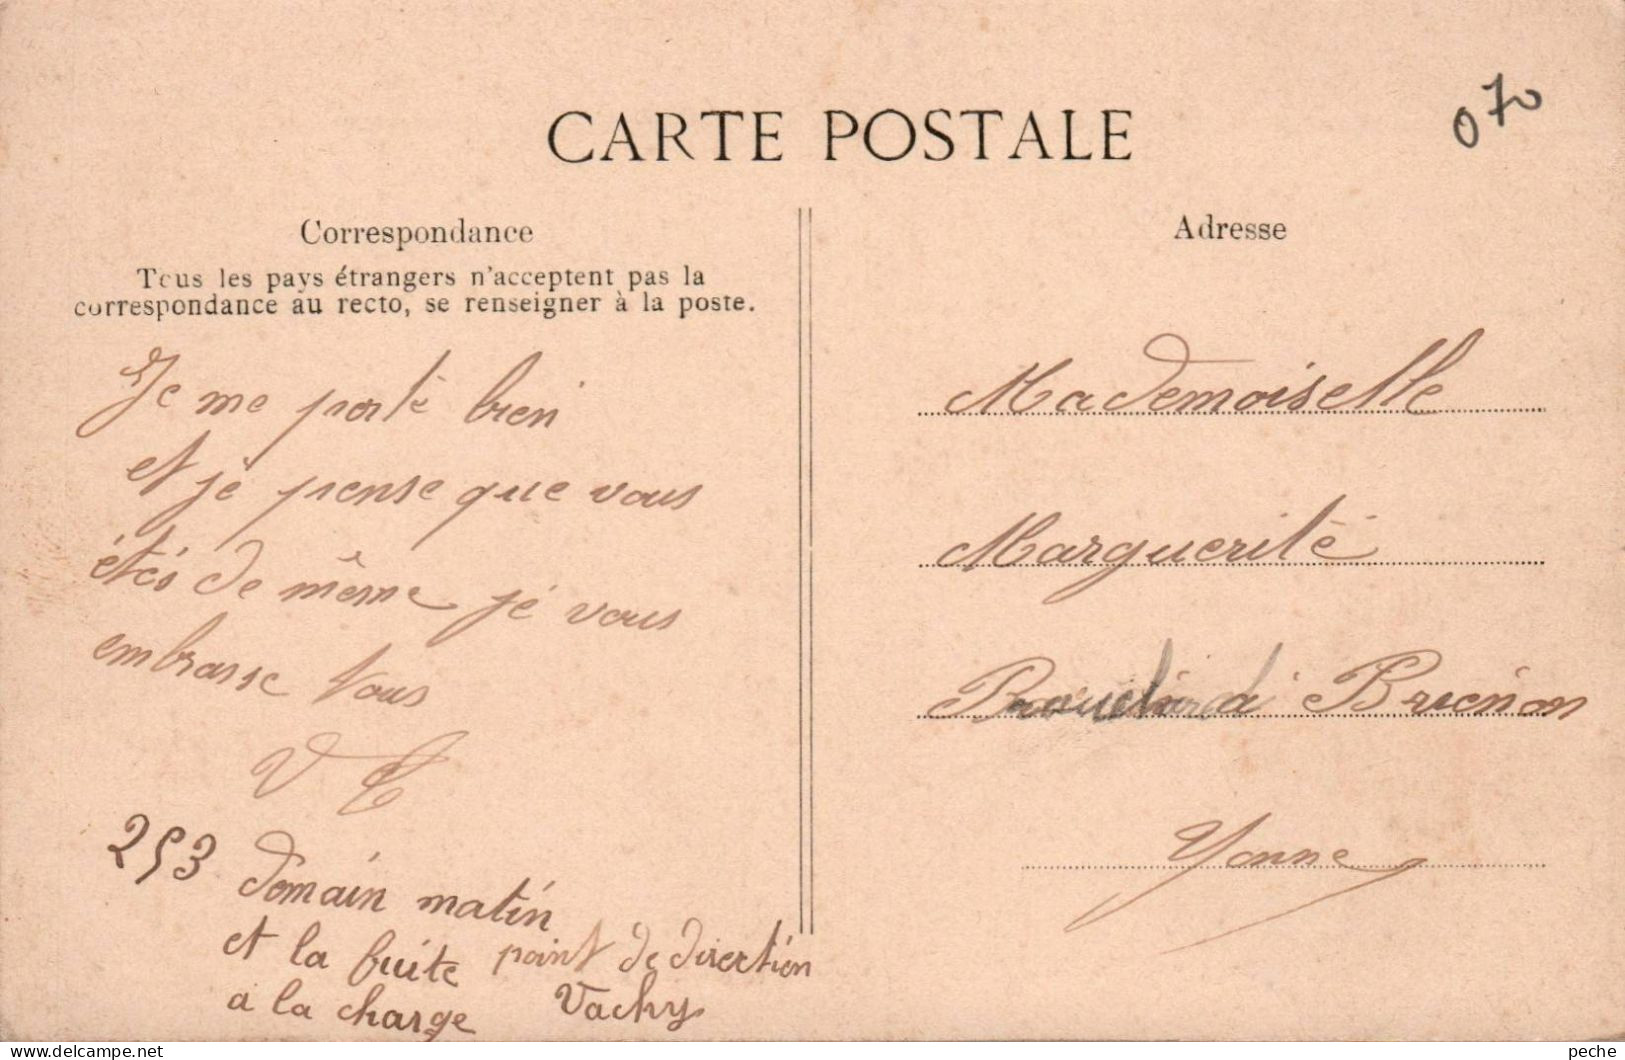 CARTE POSTALE
070
Correspondance
Tous les pays étrangers n'acceptent pas la
correspondance au recto, se renseigner à la poste.
Je me porte bien
et je pense que vous
étés de même je vous
embrasse tous
V
253 Domain matin
et la fuite point de direction
a la charge Vachy
Adresse
Mademoiselle
Marguerité
à Brienon
Yonne
delcampe.net
peche